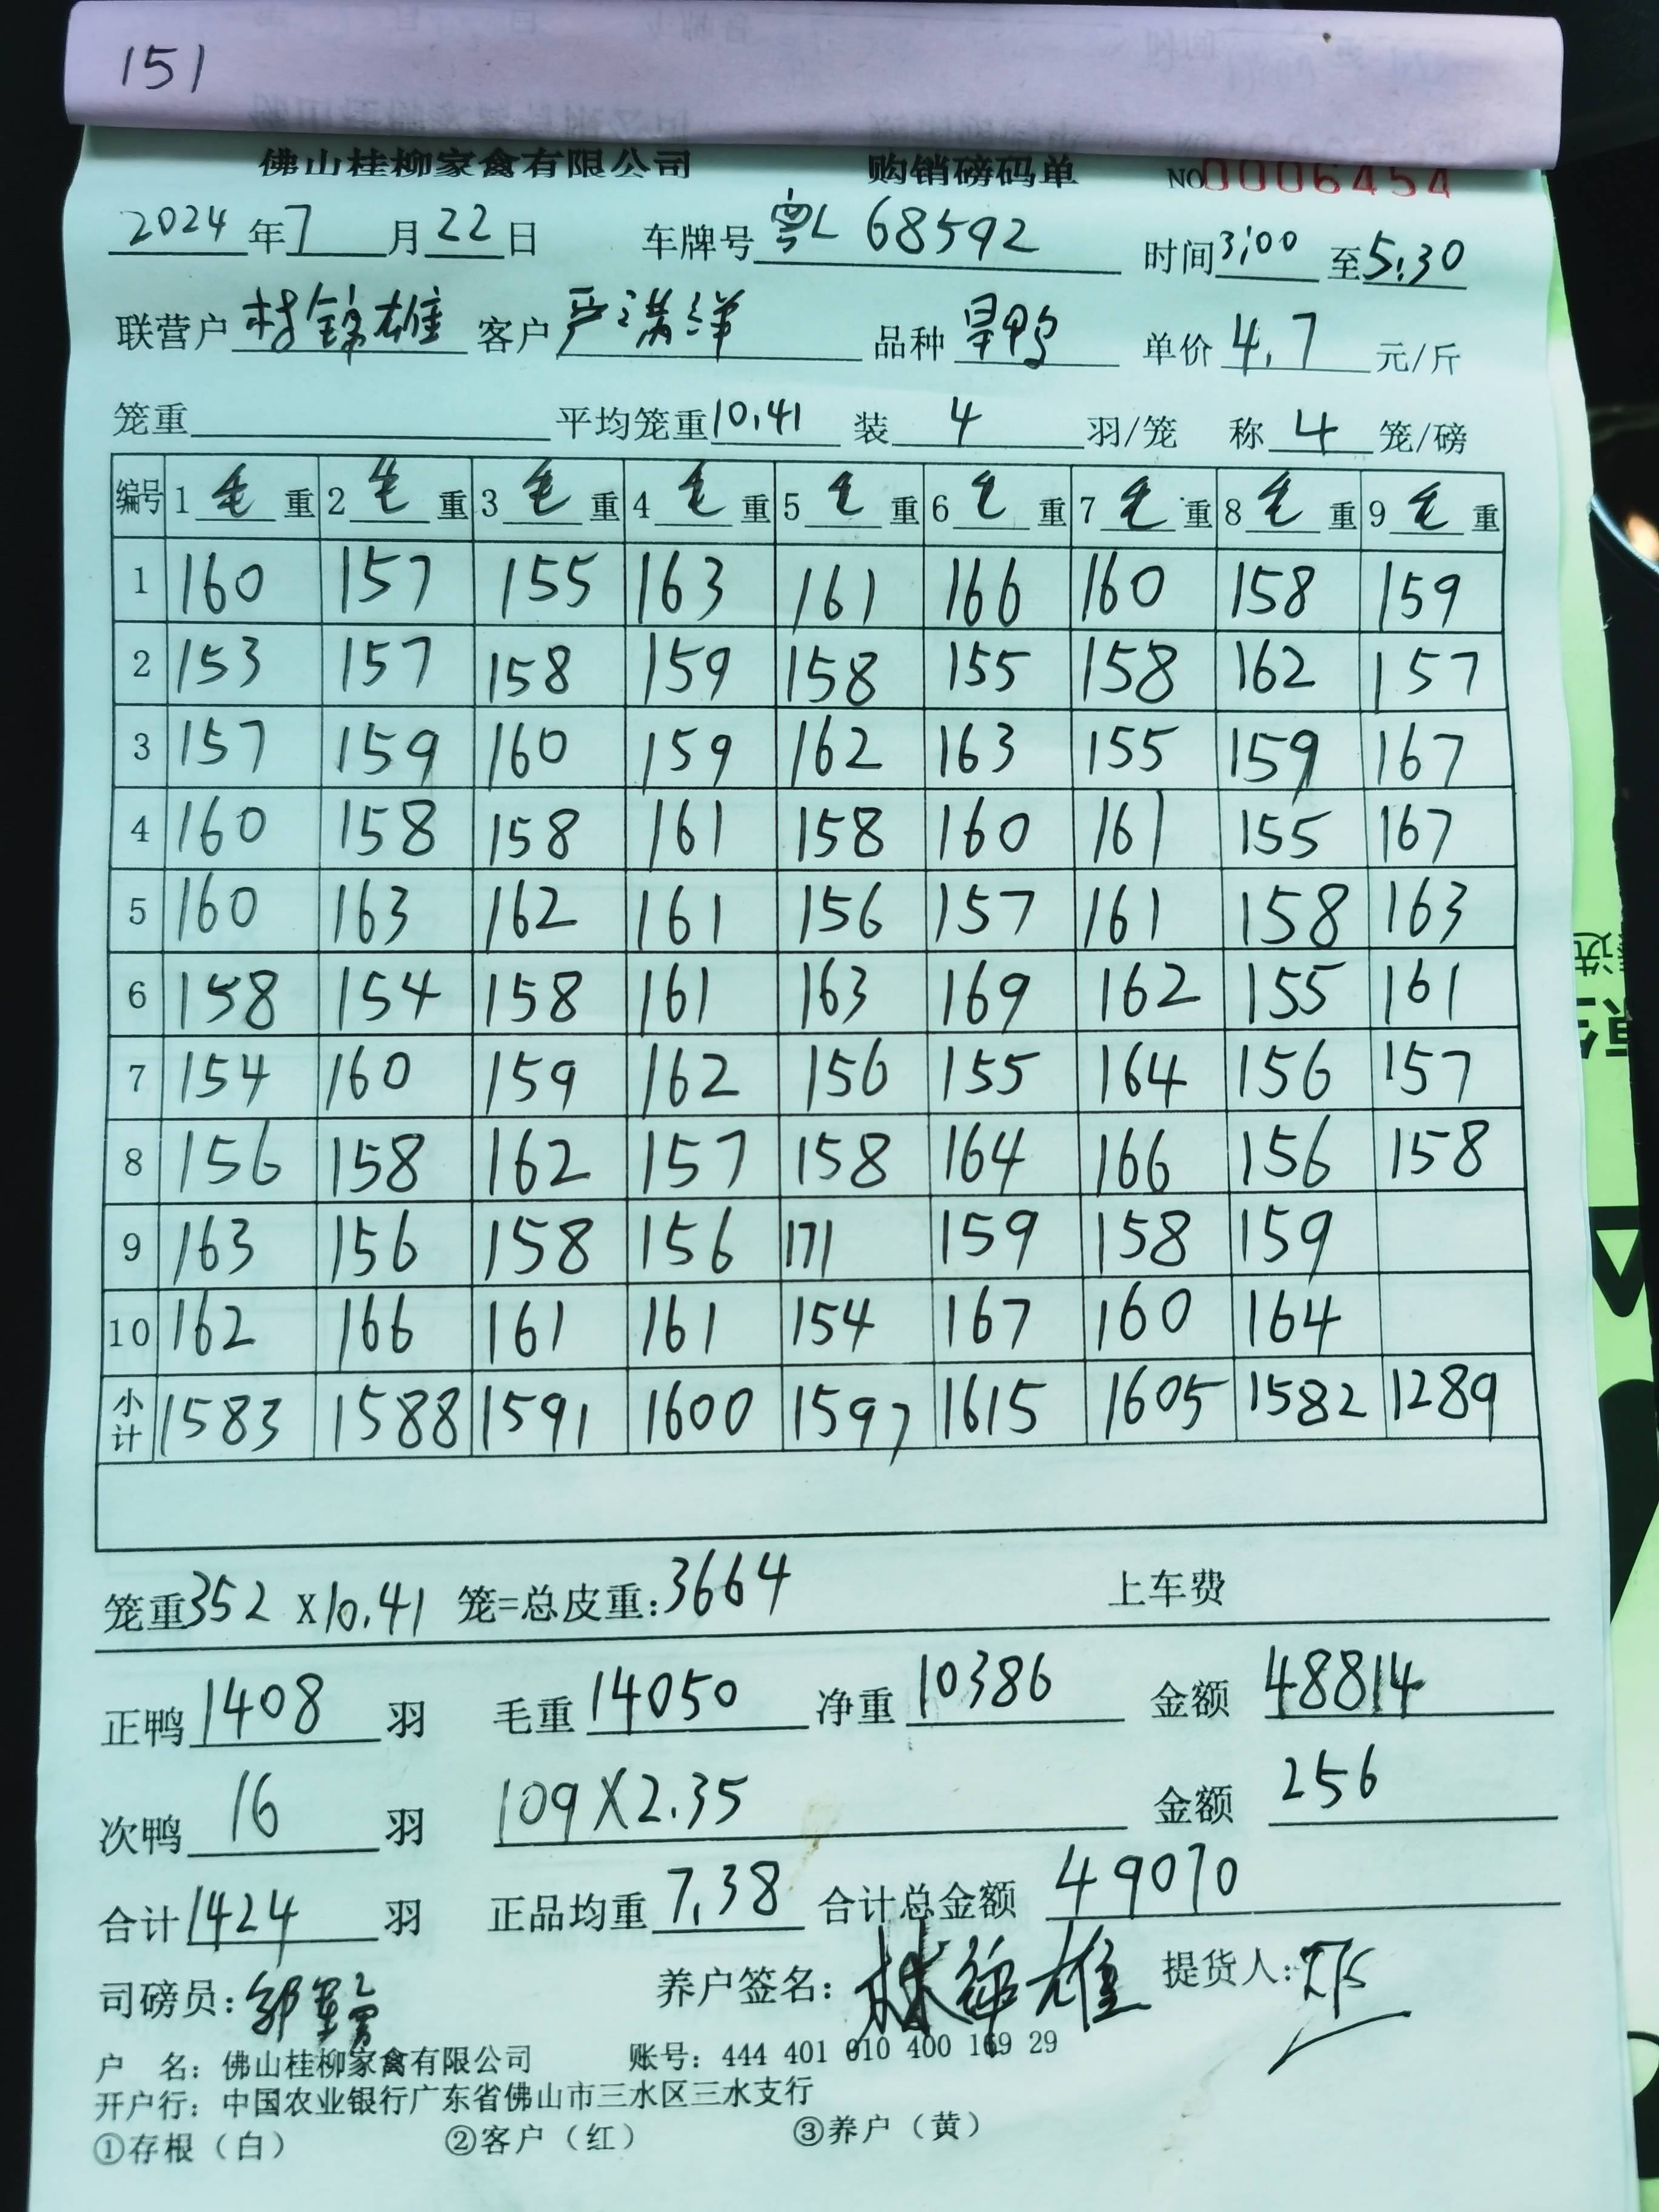 151
佛山桂柳家禽有限公司 购销磅码单 NO0006454
2024年7月22日 车牌号粤L 68592 时间3:00至5:30
联营户林锦雄 客户严满洋 品种旱鸭 单价4.7元/斤
笼重 平均笼重10.41 装4羽/笼 称4笼/磅
编号 1毛重 2毛重 3毛重 4毛重 5毛重 6毛重 7毛重 8毛重 9毛重
1 160 157 155 163 161 166 160 158 159
2 153 157 158 159 158 155 158 162 157
3 157 159 160 159 162 163 155 159 167
4 160 158 158 161 158 160 161 155 167
5 160 163 162 161 156 157 161 158 163
6 158 154 158 161 163 169 162 155 161
7 154 160 159 162 156 155 164 156 157
8 156 158 162 157 158 164 166 156 158
9 163 156 158 156 171 159 158 159
10 162 166 161 161 154 167 160 164
小计 1583 1588 1591 1600 1597 1615 1605 1582 1289
笼重352 X10.41 笼=总皮重:3664 上车费
正鸭1408羽 毛重14050 净重10386 金额48814
次鸭16羽 109X2.35 金额256
合计1424羽 正品均重7.38 合计总金额49070
司磅员: 养户签名:林锦雄 提货人:
户 名: 佛山桂柳家禽有限公司 账号: 444 401 010 400 169 29
开户行: 中国农业银行广东省佛山市三水区三水支行
①存根（白） ②客户（红） ③养户（黄）